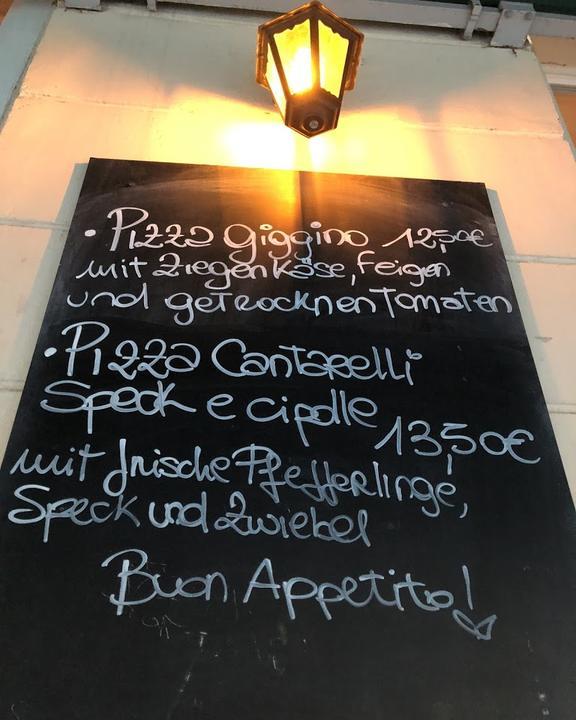 • Pizza Giggino 12,50€
mit Ziegenkäse, Feigen
und getrocknen Tomaten
• Pizza Cantarelli
Speck e cipolle
13,50€
mit frische Pfefferlinge,
Speck und Zwiebel
Buon Appetito!